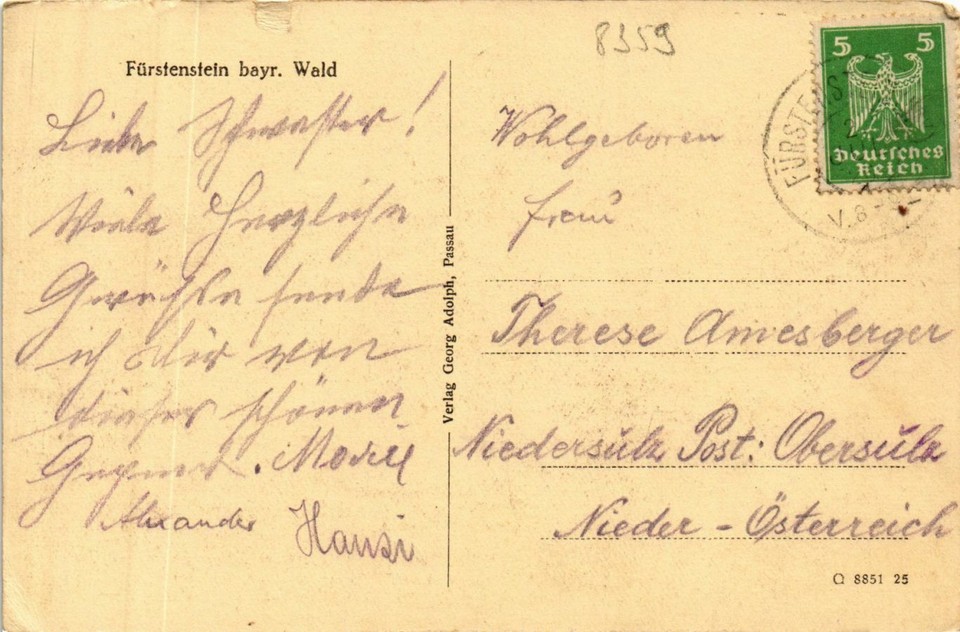 Fürstenstein bayr. Wald
Liebe Schwester!
Viele Herzliche
Grüße sende
ich dir von
dieser schönen
Gegend. Marie
Alexander Hansi
Verlag Georg Adolph, Passau
8359
5 5
Deutsches
Reich
FÜRSTE
V. 8-9
Wohlgeboren
Frau
Therese Amesberger
Niedersulz Post: Obersulz
Nieder-Österreich
Q 8851 25